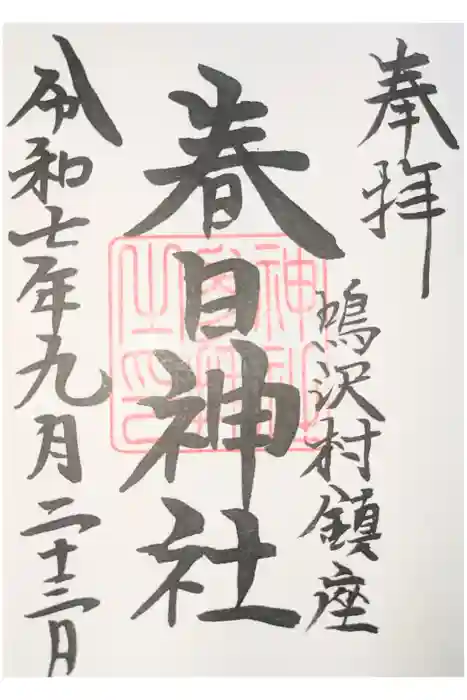 奉拝
鴻沢村鎮座
春日神社
令和七年九月二十三日